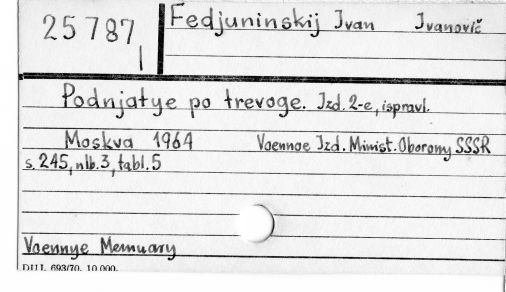 25787
Fedjuninskij Ivan Ivanovič
Podnjatye po trevoge. Izd. 2-e, ispravl.
Moskva 1964 Voennoe Izd. Minist. Oborony SSSR
s. 245, nlb. 3, tabl. 5
Voennye Memuary
DUJ. 693/70. 10 000.